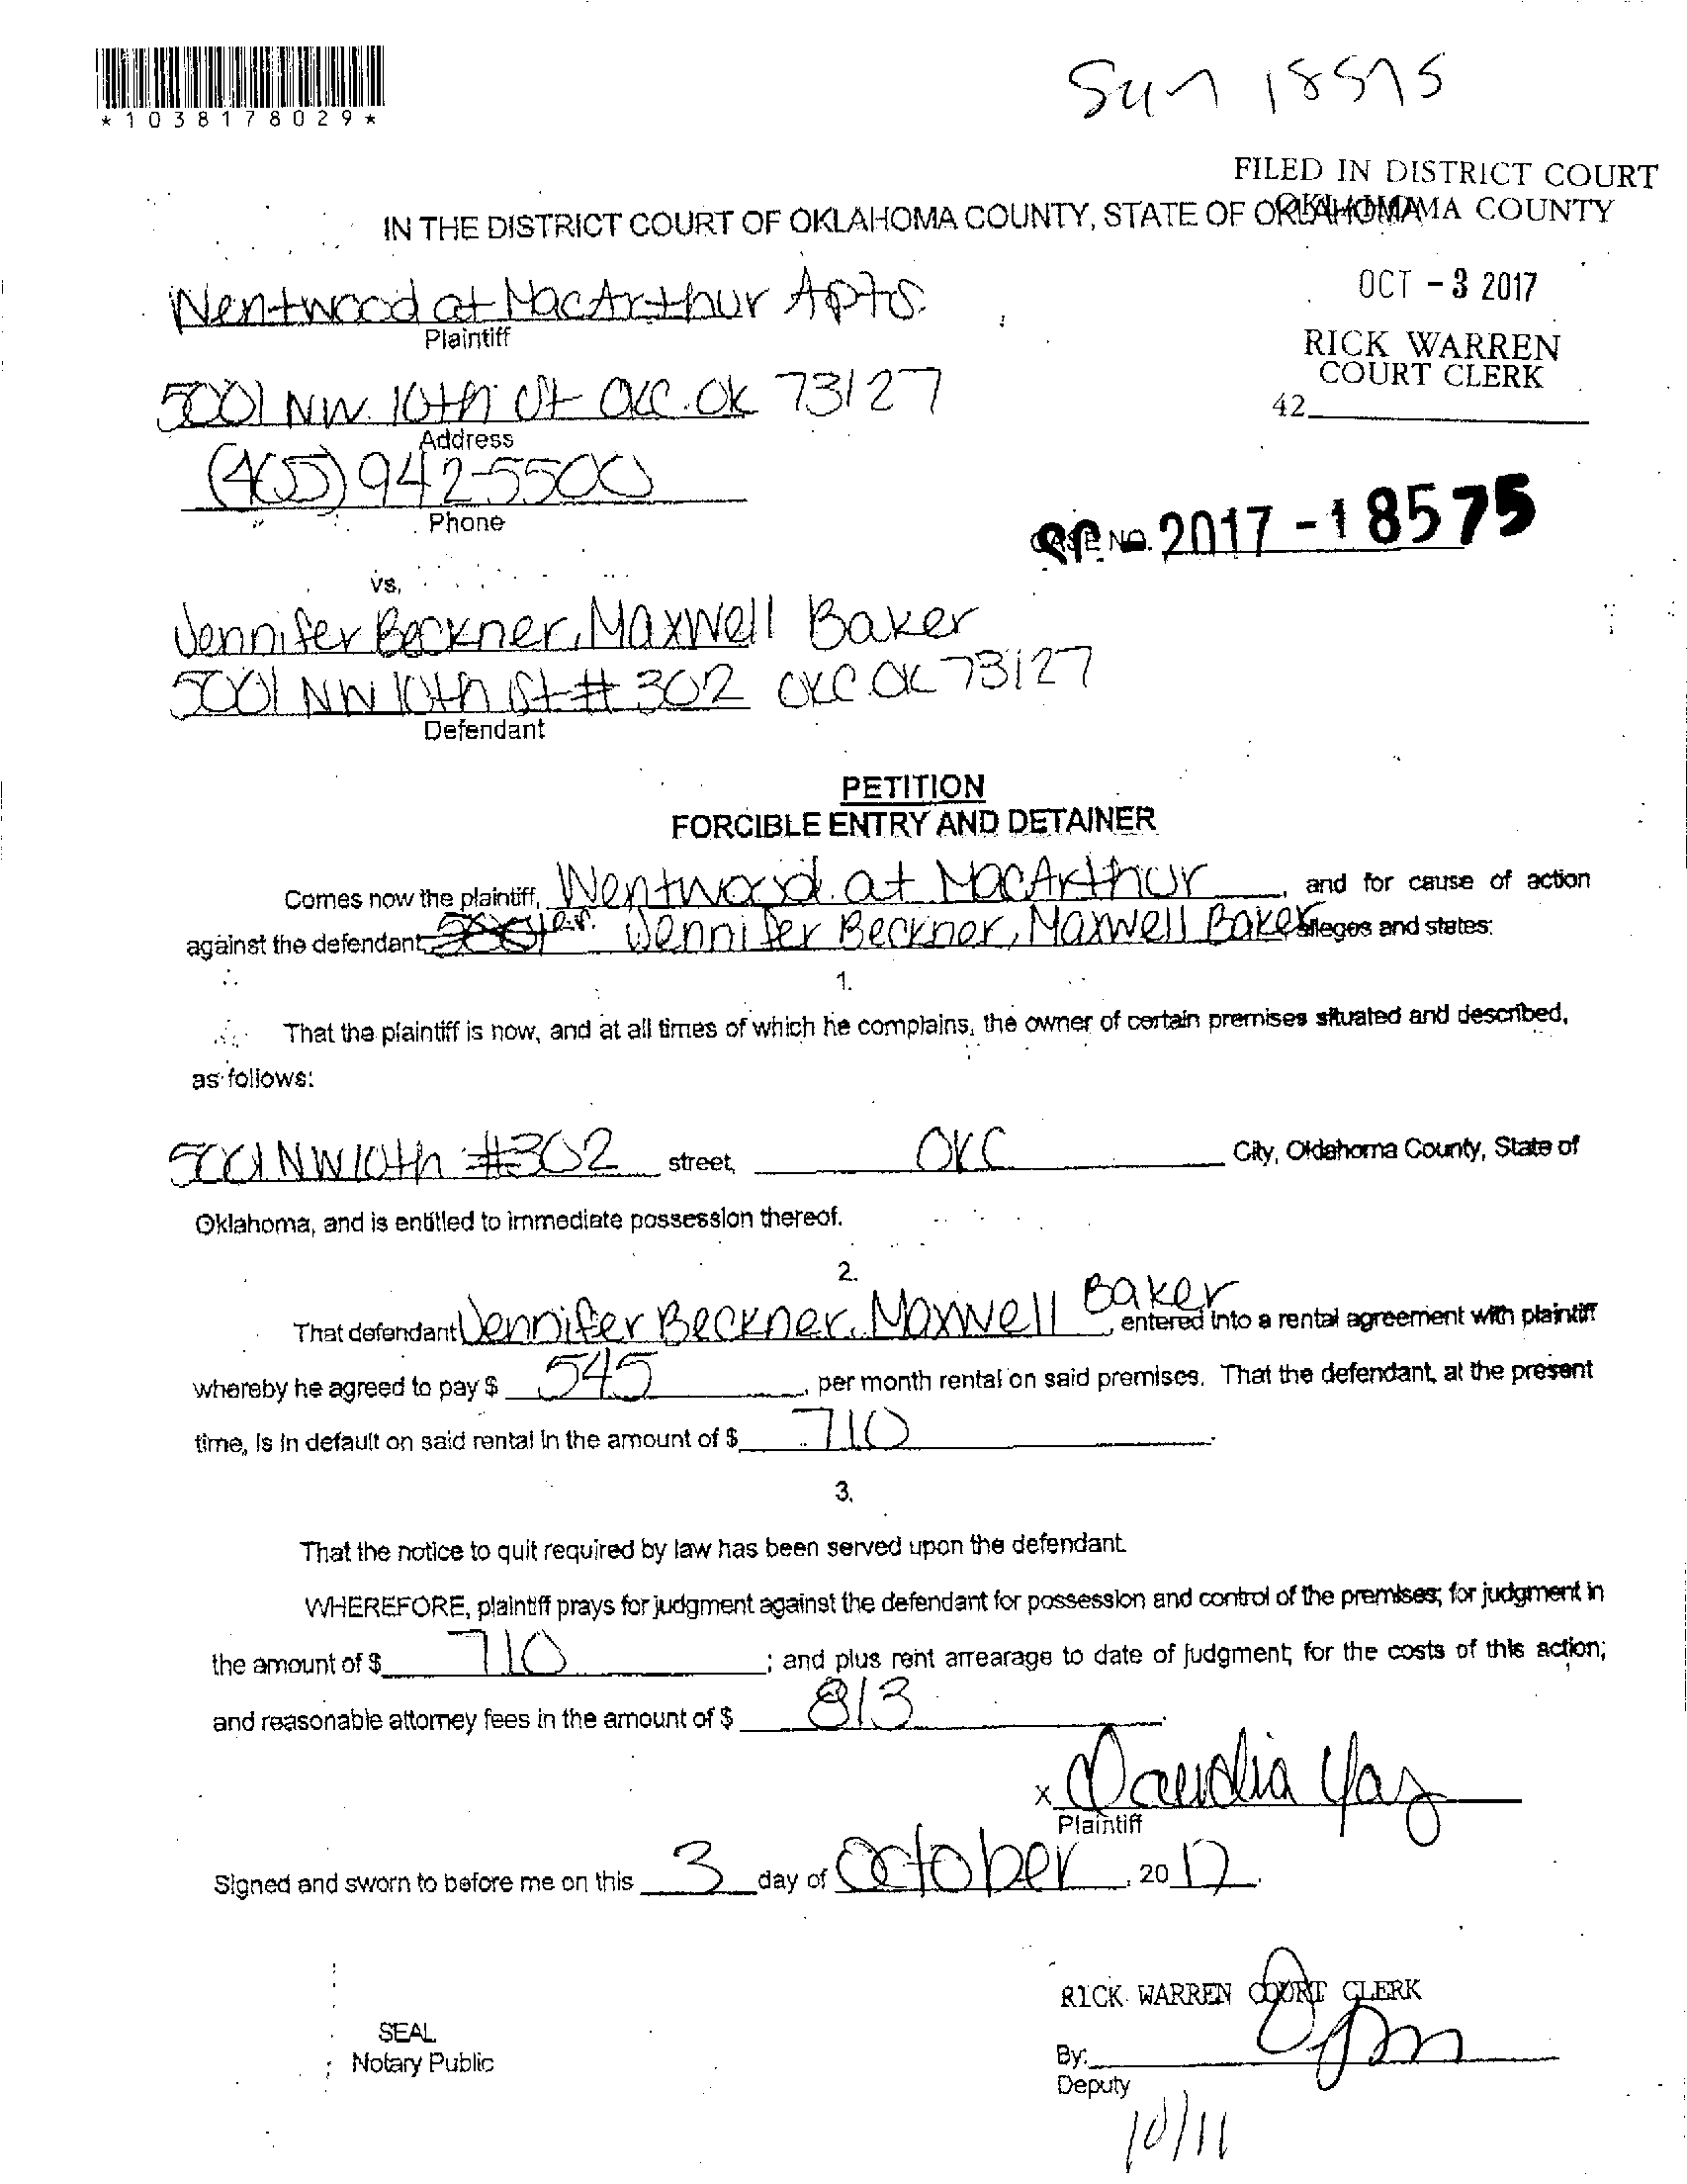 *1038178029*
FILED IN DISTRICT COURT
OKLAHOMA COUNTY
IN THE DISTRICT COURT OF OKLAHOMA COUNTY, STATE OF OKLAHOMA
OCT - 3 2017
Wentwood at MacArthur Apts.
Plaintiff
RICK WARREN
COURT CLERK
5001 NW. 10th St OKC. OK 73127
42
Address
(405) 942-5500
Phone
CASE NO. 2017 - 18575
vs.
Jennifer Beckner, Maxwell Baker
5001 NW 10th St # 302 OKC. OK 73127
Defendant
PETITION
FORCIBLE ENTRY AND DETAINER
Comes now the plaintiff, Wentwood at MacArthur, and for cause of action
against the defendant, Jennifer Beckner, Maxwell Baker alleges and states:
1.
That the plaintiff is now, and at all times of which he complains, the owner of certain premises situated and described,
as follows:
5001 NW 10th #302 street, OKC City, Oklahoma County, State of
Oklahoma, and is entitled to immediate possession thereof.
2.
That defendant Jennifer Beckner, Maxwell Baker, entered into a rental agreement with plaintiff
whereby he agreed to pay $ 545, per month rental on said premises. That the defendant, at the present
time, is in default on said rental in the amount of $ 710.
3.
That the notice to quit required by law has been served upon the defendant.
WHEREFORE, plaintiff prays for judgment against the defendant for possession and control of the premises; for judgment in
the amount of $ 710; and plus rent arrearage to date of judgment; for the costs of this action;
and reasonable attorney fees in the amount of $ 813.
x Claudia Yaz
Plaintiff
Signed and sworn to before me on this 3 day of October, 2017.
RICK WARREN COURT CLERK
SEAL
Notary Public
By:
Deputy
10/11